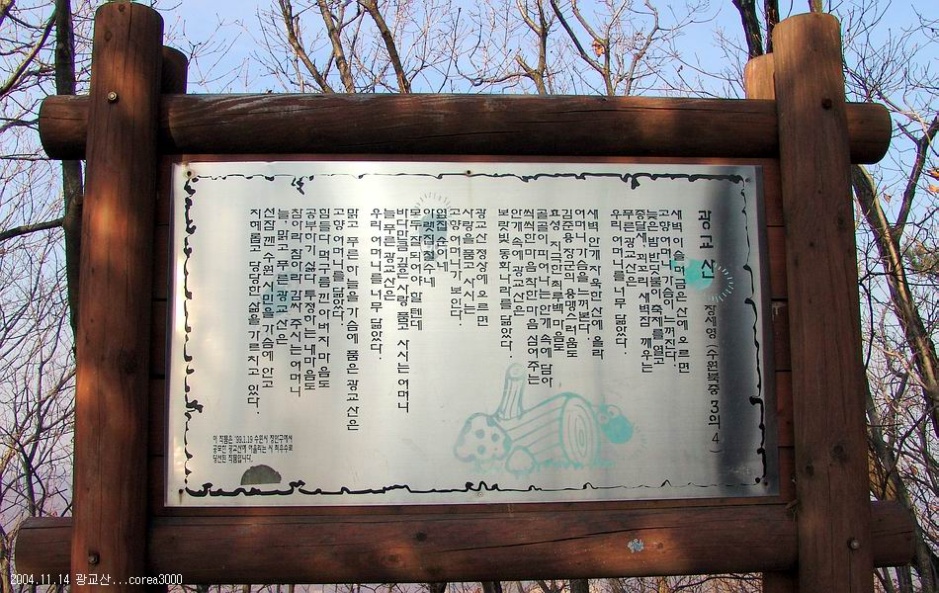 광교산
장세영 (수원북중 3의 4)
새벽 이슬 머금은 산에 오르면
고향 어머니 가슴이 느껴진다.
늦은 밤 반딧불이 축제를 열고
종달새, 꾀꼬리 새벽잠 깨우는
푸른 광교산은
우리 어머니를 너무 닮았다.
새벽 안개 자욱한 산에 올라
어머니 가슴을 느껴본다.
김준용 장군의 용맹스러움도
효성 지극한 최루백 마음도
골골이 피어나는 안개 속에 담아
씩씩한 마음 착한 마음 심어 주는
안개 속의 광교산은
보랏빛 동화나라를 닮았다.
광교산 정상에 오르면
사랑을 품고 사시는
고향 어머니가 보인다.
윗집 순이네
아랫집 철수네
모두 잘 되어야 할 텐데
바다만큼 깊은 사랑 품고 사시는 어머니
늘 푸른 광교산은
우리 어머니를 너무 닮았다.
맑고 푸른 하늘을 가슴에 품은 광교산은
고향 어머니를 닮았다.
힘들다 먹구름 낀 아버지 마음도
공부하기 싫다 투정하는 내 마음도
참아라 참아라 감싸 주시는 어머니
늘 맑고 푸른 광교산은
선잠 깬 수원 시민을 가슴에 안고
지혜롭고 당당한 삶을 가르치고 있다.
이 작품은 '99.1.19 수원시 장안구에서
공모한 광교산에 어울리는 시 최우수로
당선된 작품입니다.
2004.11.14 광교산...corea3000